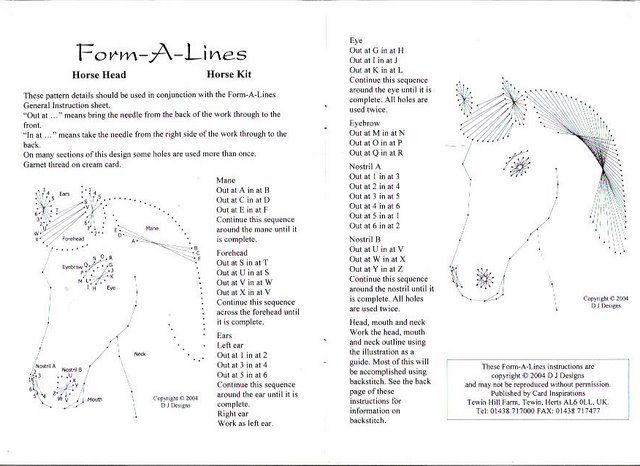 Form-A-Lines
Horse Head Horse Kit
These pattern details should be used in conjunction with the Form-A-Lines
General Instruction sheet.
“Out at ...” means bring the needle from the back of the work through to the
front.
“In at ...” means take the needle from the right side of the work through to the
back.
On many sections of this design some holes are used more than once.
Garnet thread on cream card.
Ears
Mane
Forehead
Eyebrow
Eye
Nostril A
Nostril B
Mouth
Neck
Copyright © 2004
D J Designs
Mane
Out at A in at B
Out at C in at D
Out at E in at F
Continue this sequence
around the mane until it
is complete.
Forehead
Out at S in at T
Out at U in at S
Out at V in at W
Out at X in at V
Continue this sequence
across the forehead until
it is complete.
Ears
Left ear
Out at 1 in at 2
Out at 3 in at 4
Out at 5 in at 6
Continue this sequence
around the ear until it is
complete.
Right ear
Work as left ear.
Eye
Out at G in at H
Out at I in at J
Out at K in at L
Continue this sequence
around the eye until it is
complete. All holes are
used twice.
Eyebrow
Out at M in at N
Out at O in at P
Out at Q in at R
Nostril A
Out at 1 in at 3
Out at 2 in at 4
Out at 3 in at 5
Out at 4 in at 6
Out at 5 in at 1
Out at 6 in at 2
Nostril B
Out at U in at V
Out at W in at X
Out at Y in at Z
Continue this sequence
around the nostril until it
is complete. All holes
are used twice.
Head, mouth and neck
Work the head, mouth
and neck outline using
the illustration as a
guide. Most of this will
be accomplished using
backstitch. See the back
page of these
instructions for
information on
backstitch.
Copyright © 2004
D J Designs
These Form-A-Lines instructions are
copyright © 2004 D J Designs
and may not be reproduced without permission.
Published by Card Inspirations
Tewin Hill Farm, Tewin, Herts AL6 0LL, UK.
Tel: 01438 717000 FAX: 01438 717477